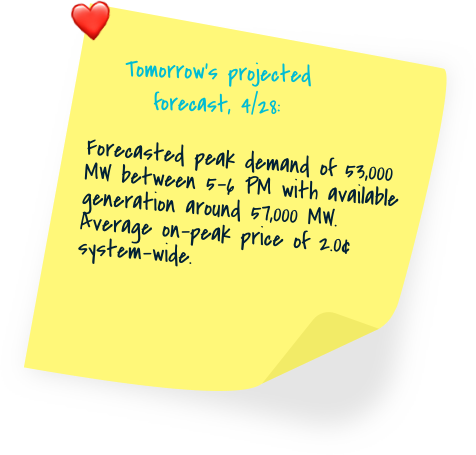 Tomorrow's projected
forecast, 4/28:
Forecasted peak demand of 53,000
MW between 5-6 PM with available
generation around 57,000 MW.
Average on-peak price of 2.0¢
system-wide.